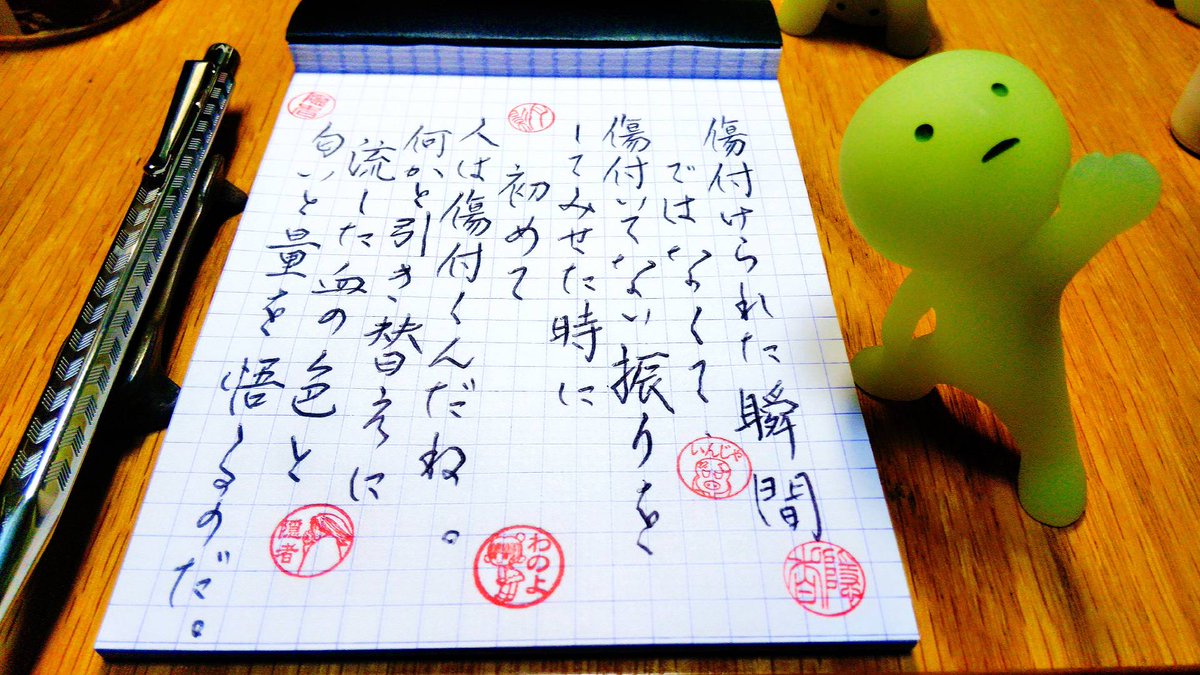 傷付けられた瞬間
ではなくて、
傷付いてない振りを
してみせた時に
初めて
人は傷付くんだね。
何かと引き替えに
流した血の色と
匂いと量を
悟るのだ。
いんじゃ
隠者
わのよ
隠者